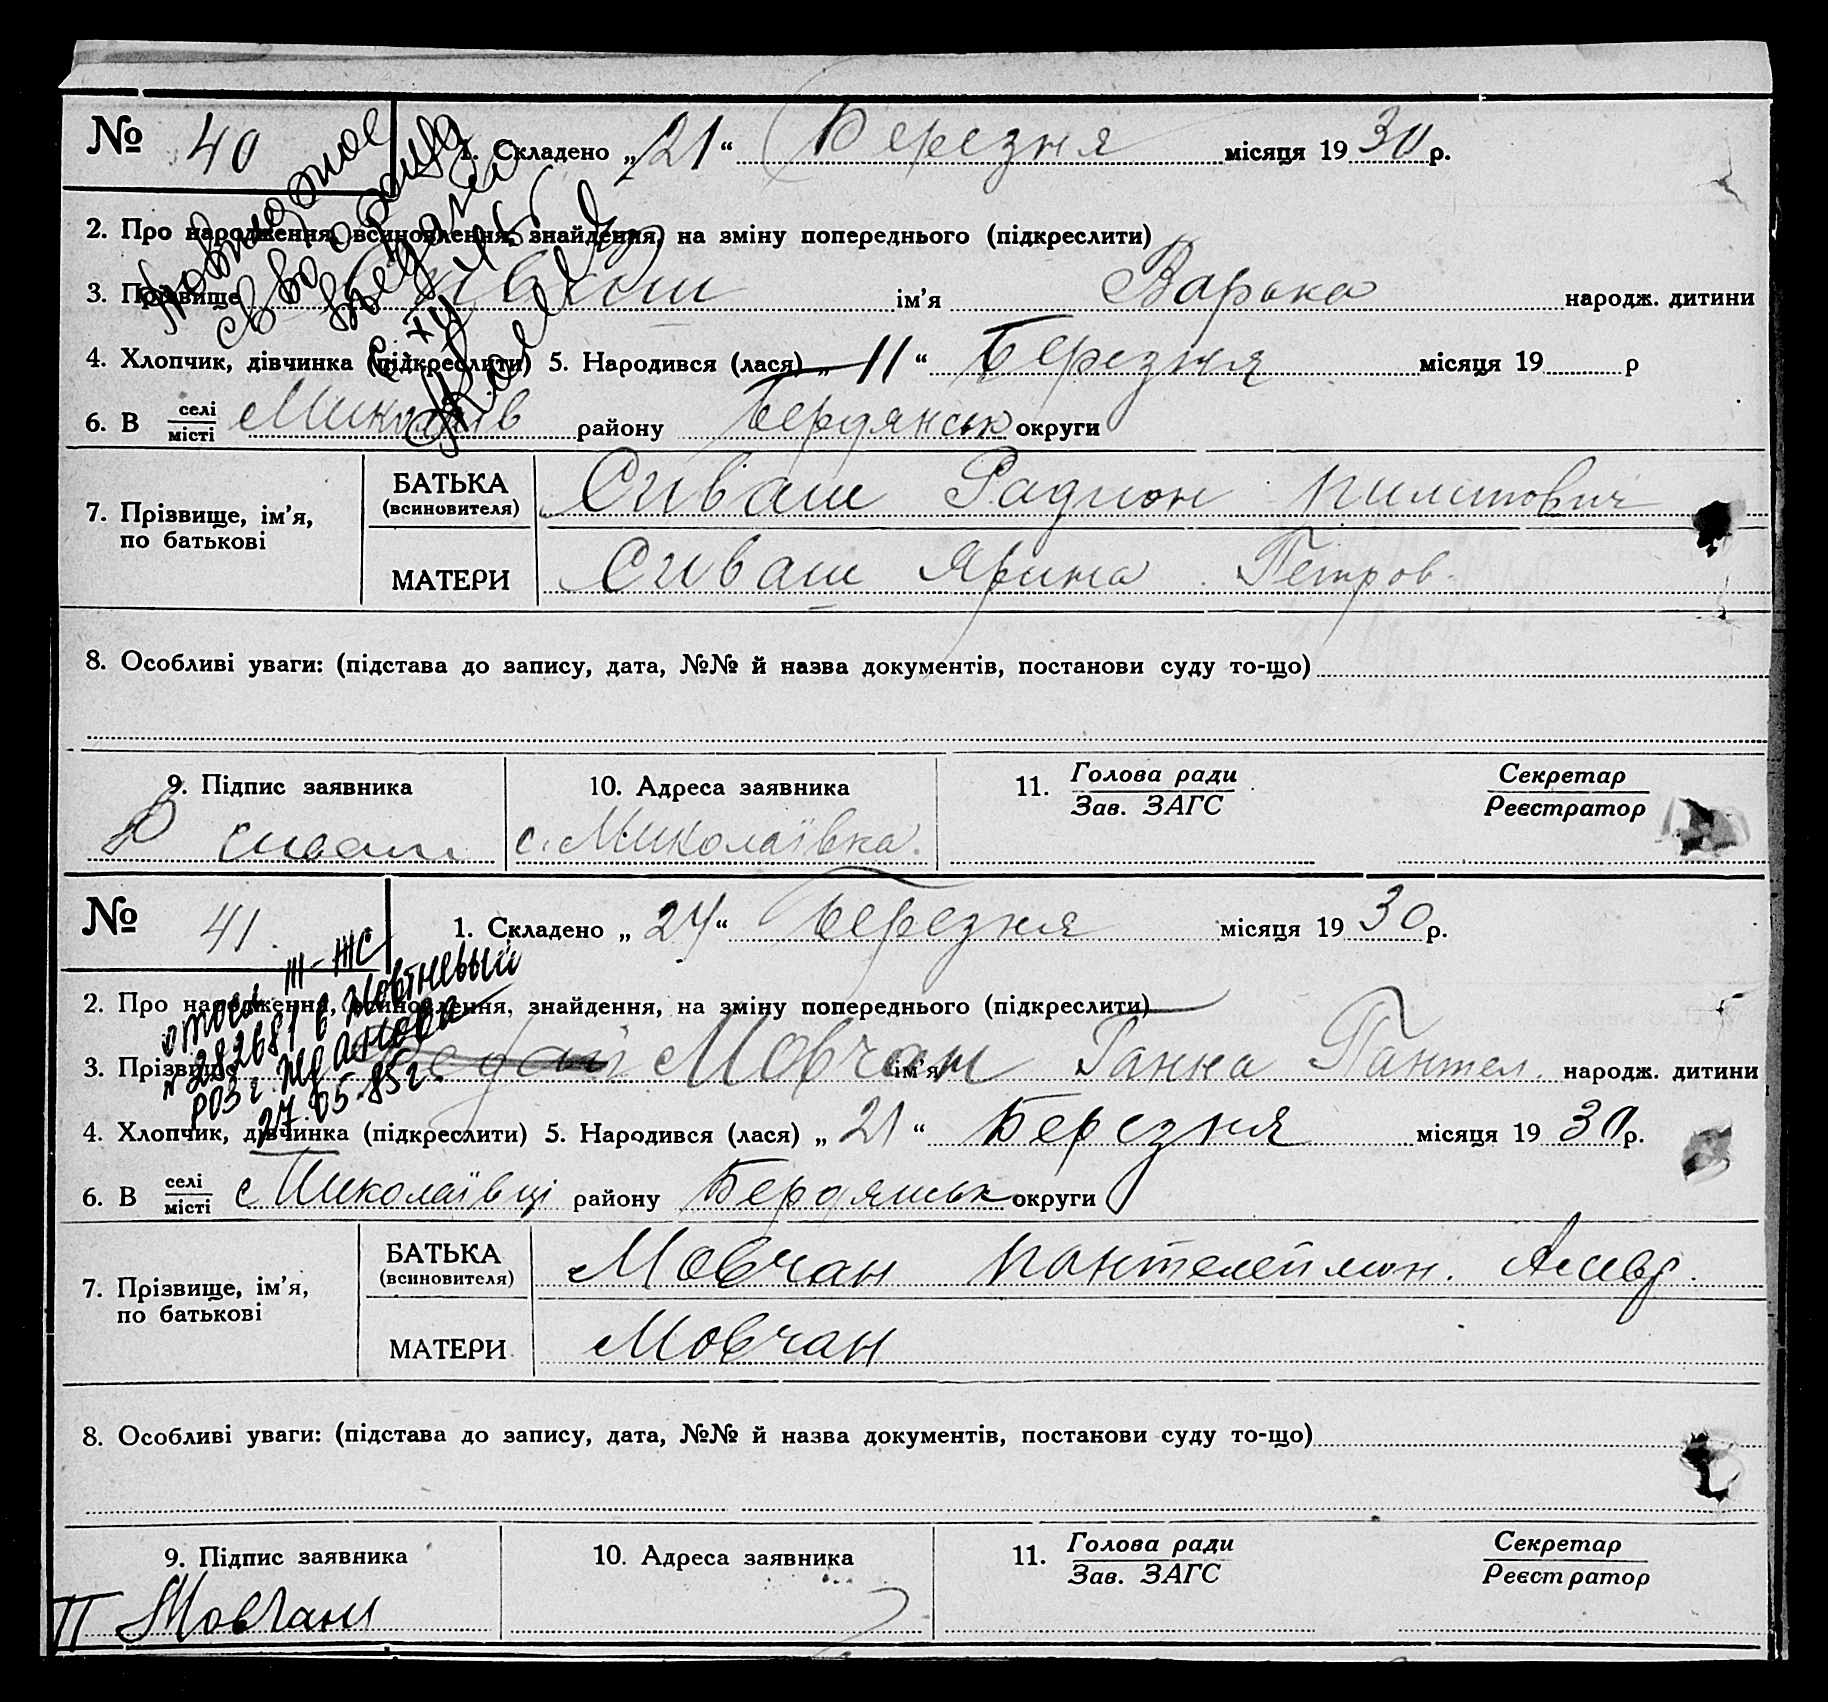 № 40 1. Складено „21“ Березня місяця 1930 р.
2. Про народження, всиновлення, знайдення, на зміну попереднього (підкреслити)
3. Прізвище Сиваш ім'я Варька народж. дитини
4. Хлопчик, дівчинка (підкреслити) 5. Народився (лася) „11“ Березня місяця 19 р
6. В селі/місті Миколаїв району Бердянськ округи
7. Прізвище, ім'я, по батькові
БАТЬКА (всиновителя) Сиваш Радион Пилипович
МАТЕРИ Сиваш Ярина Петров.
8. Особливі уваги: (підстава до запису, дата, №№ й назва документів, постанови суду то-що)
9. Підпис заявника 10. Адреса заявника 11. Голова ради Секретар
Зав. ЗАГС Реєстратор
Р Сиваш с. Миколаївка.
№ 41. 1. Складено „24“ Березня місяця 1930 р.
III-ЖС
2. Про народження, всиновлення, знайдення, на зміну попереднього (підкреслити)
3. Прізвище Мовчан ім'я Ганна Пантел. народж. дитини
27.05.85г.
4. Хлопчик, дівчинка (підкреслити) 5. Народився (лася) „21“ Березня місяця 1930 р.
6. В селі/місті с Миколаївці району Бердянськ округи
7. Прізвище, ім'я, по батькові
БАТЬКА (всиновителя) Мовчан Пантелеймон.
МАТЕРИ Мовчан
8. Особливі уваги: (підстава до запису, дата, №№ й назва документів, постанови суду то-що)
9. Підпис заявника 10. Адреса заявника 11. Голова ради Секретар
Зав. ЗАГС Реєстратор
П Мовчан